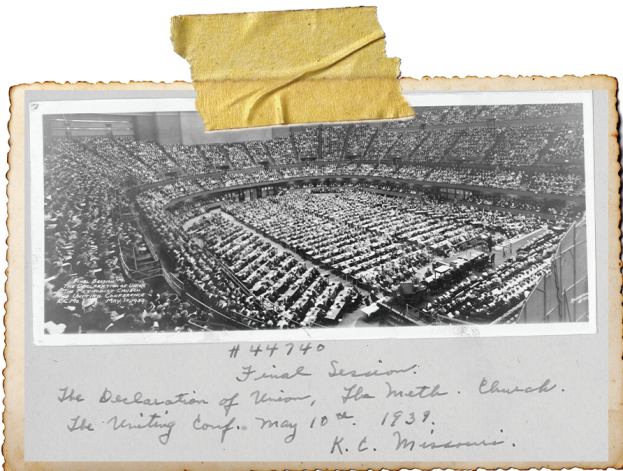 Final Session
The Declaration of Union
The Methodist Church
The Uniting Conference
K.C. Mo. May 10, 1939
#44740
Final Session.
The Declaration of Union, The Meth. Church.
The Uniting Conf. May 10th. 1939.
K. C. Missouri.